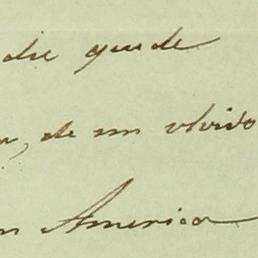 die quede
, de un olvido
n America